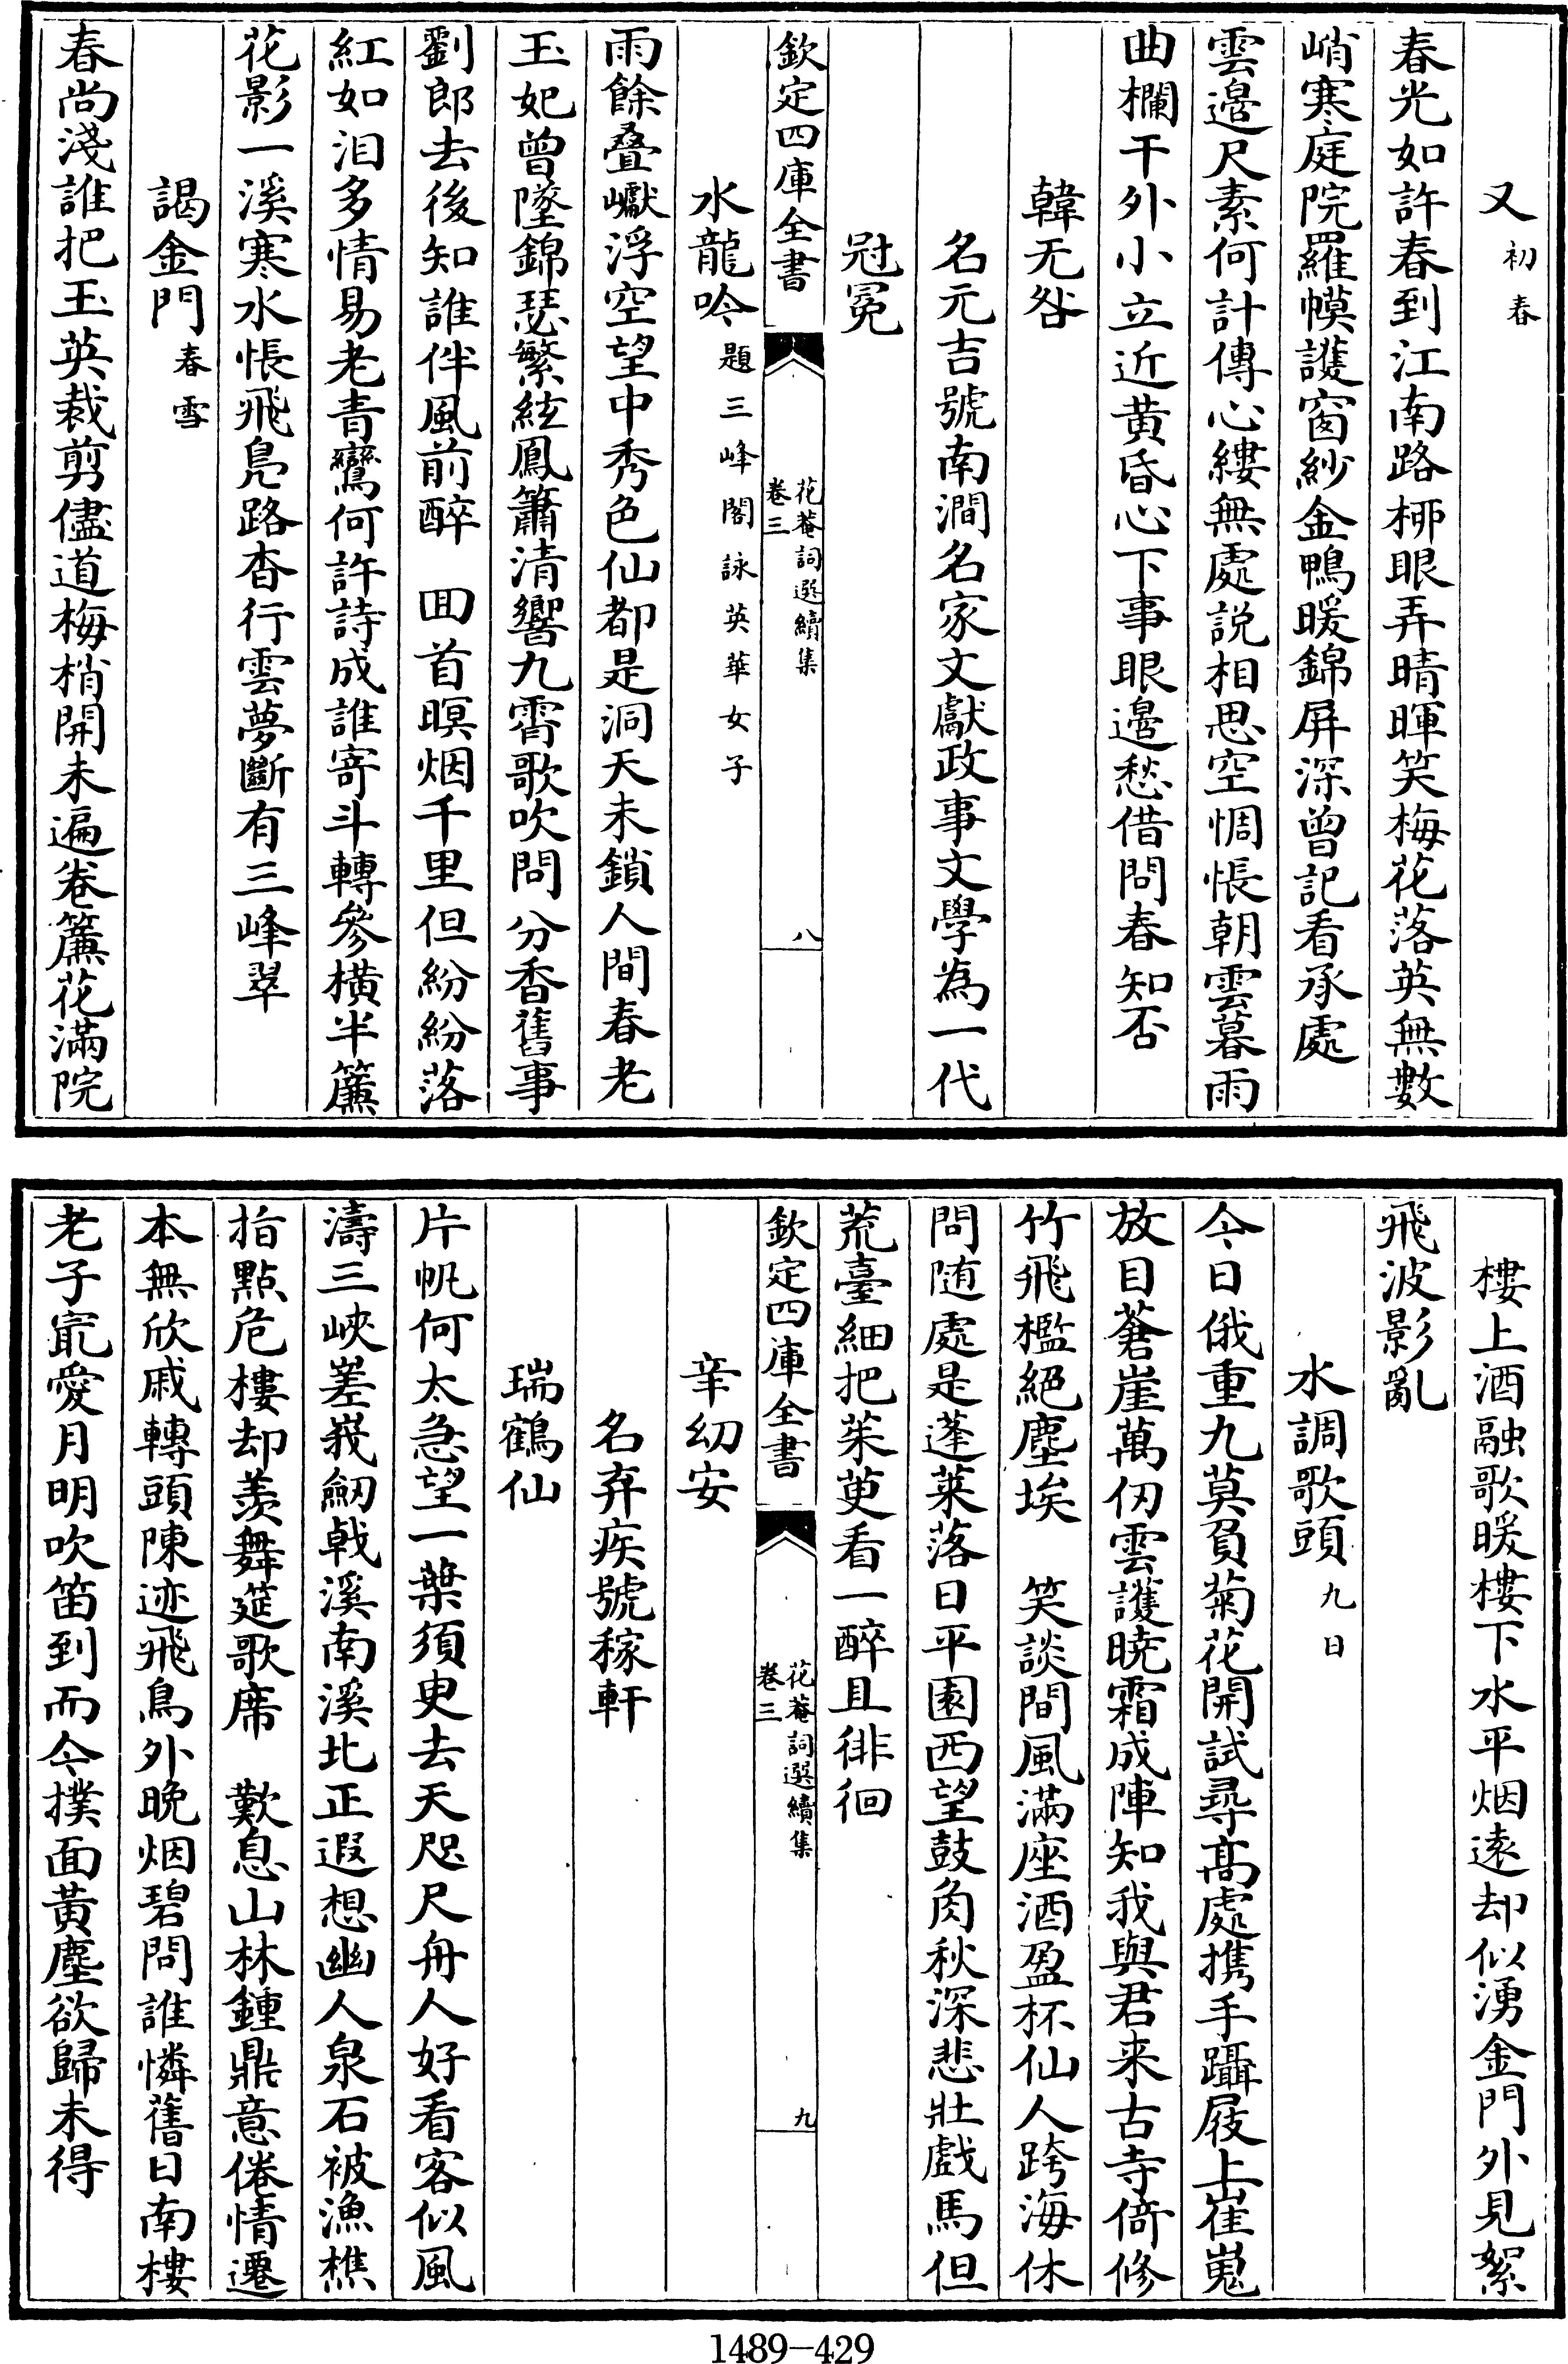 又初春
春光如許春到江南路栁眼弄晴暉笑梅花落英無數
峭寒庭院羅幙䕶窗紗金鴨暖錦屏深曽記看承處
雲邉尺素何計傳心縷無處説相思空惆悵朝雲暮雨
曲欄干外小立近黄昏心下事眼邉愁借問春知否
韓无咎
名元吉號南澗名家文獻政事文學為一代
冠冕
欽定四庫全書
花菴詞選續集
卷三
八
水龍吟題三峰閣詠英華女子
雨餘疊巘浮空望中秀色仙都是洞天未鎖人間春老
玉妃曾墜錦瑟繁絃鳳簫清響九霄歌吹問分香舊事
劉郎去後知誰伴風前醉　囬首暝烟千里但紛紛落
紅如泪多情易老青鸞何許詩成誰寄斗轉參横半簾
花影一溪寒水悵飛鳬路杳行雲夢斷有三峰翠
謁金門春雪
春尚淺誰把玉英裁剪儘道梅梢開未遍卷簾花滿院
樓上酒融歌暖樓下水平烟逺却似湧金門外見絮
飛波影亂
水調歌頭九日
今日俄重九莫負菊花開試尋髙處携手躡屐上崔嵬
放目蒼崖萬仭雲䕶曉霜成陣知我與君来古寺倚修
竹飛檻絶塵埃　笑談間風滿座酒盈杯仙人跨海休
問随處是蓬萊落日平園西望鼓角秋深悲壯戲馬但
荒臺細把茱萸看一醉且徘徊
欽定四庫全書
花菴詞選續集
卷三
九
辛幼安
名弃疾號稼軒
瑞鶴仙
片帆何太急望一葉須㬰去天咫尺舟人好看客似風
濤三峽嵳峩劒戟溪南溪北正遐想幽人泉石被漁樵
指點危樓却羡舞筵歌席　歎息山林鍾鼎意倦情遷
本無欣戚轉頭陳迹飛鳥外晚烟碧問誰憐舊日南樓
老子㝡愛月明吹笛到而今撲面黄塵欲歸未得
1489-429